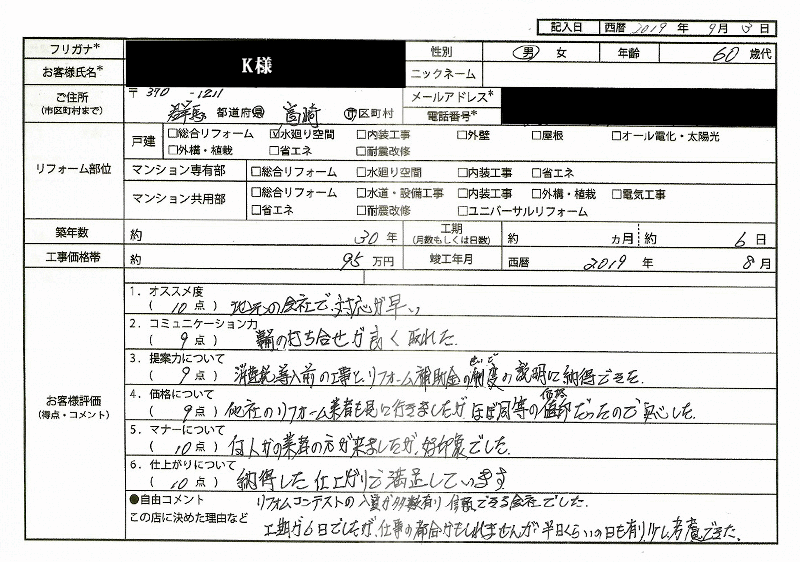 記入日 西暦 2019 年 9月 3日
フリガナ* 性別 男 女 年齢 60 歳代
お客様氏名* K様 ニックネーム
ご住所 (市区町村まで) 〒370-1211 メールアドレス*
群馬 都道府県 高崎 市区町村 電話番号*
リフォーム部位 戸建 □総合リフォーム ☑水廻り空間 □内装工事 □外壁 □屋根 □オール電化・太陽光
□外構・植栽 □省エネ □耐震改修
マンション専有部 □総合リフォーム □水廻り空間 □内装工事 □省エネ
マンション共用部 □総合リフォーム □水道・設備工事 □内装工事 □外構・植栽 □電気工事
□省エネ □耐震改修 □ユニバーサルリフォーム
築年数 約 30 年 工期 (月数もしくは日数) 約 カ月 約 6 日
工事価格帯 約 95 万円 竣工年月 西暦 2019 年 8 月
お客様評価 (得点・コメント)
1.オススメ度
( 10 点 ) 地元の会社で、対応が早い。
2.コミュニケーション力
( 9 点 ) 事前の打ち合せが良く取れた。
3.提案力について
( 9 点 ) 消費税導入前の工事と、リフォーム補助金の制度の説明に納得できた。
4.価格について
( 9 点 ) 他社のリフォーム業者も見に行きましたが、ほぼ同等の価格だったので安心した。
5.マナーについて
( 10 点 ) 何人かの業者の方が来ましたが、好印象でした。
6.仕上がりについて
( 10 点 ) 納得した仕上がりで満足しています
●自由コメント リフォムコンテストの入賞が多数有り信頼できる会社でした。
この店に決めた理由など 工期が6日でしたが、仕事の都合かもしれませんが、半日くらいの日も有り少し考慮できた。